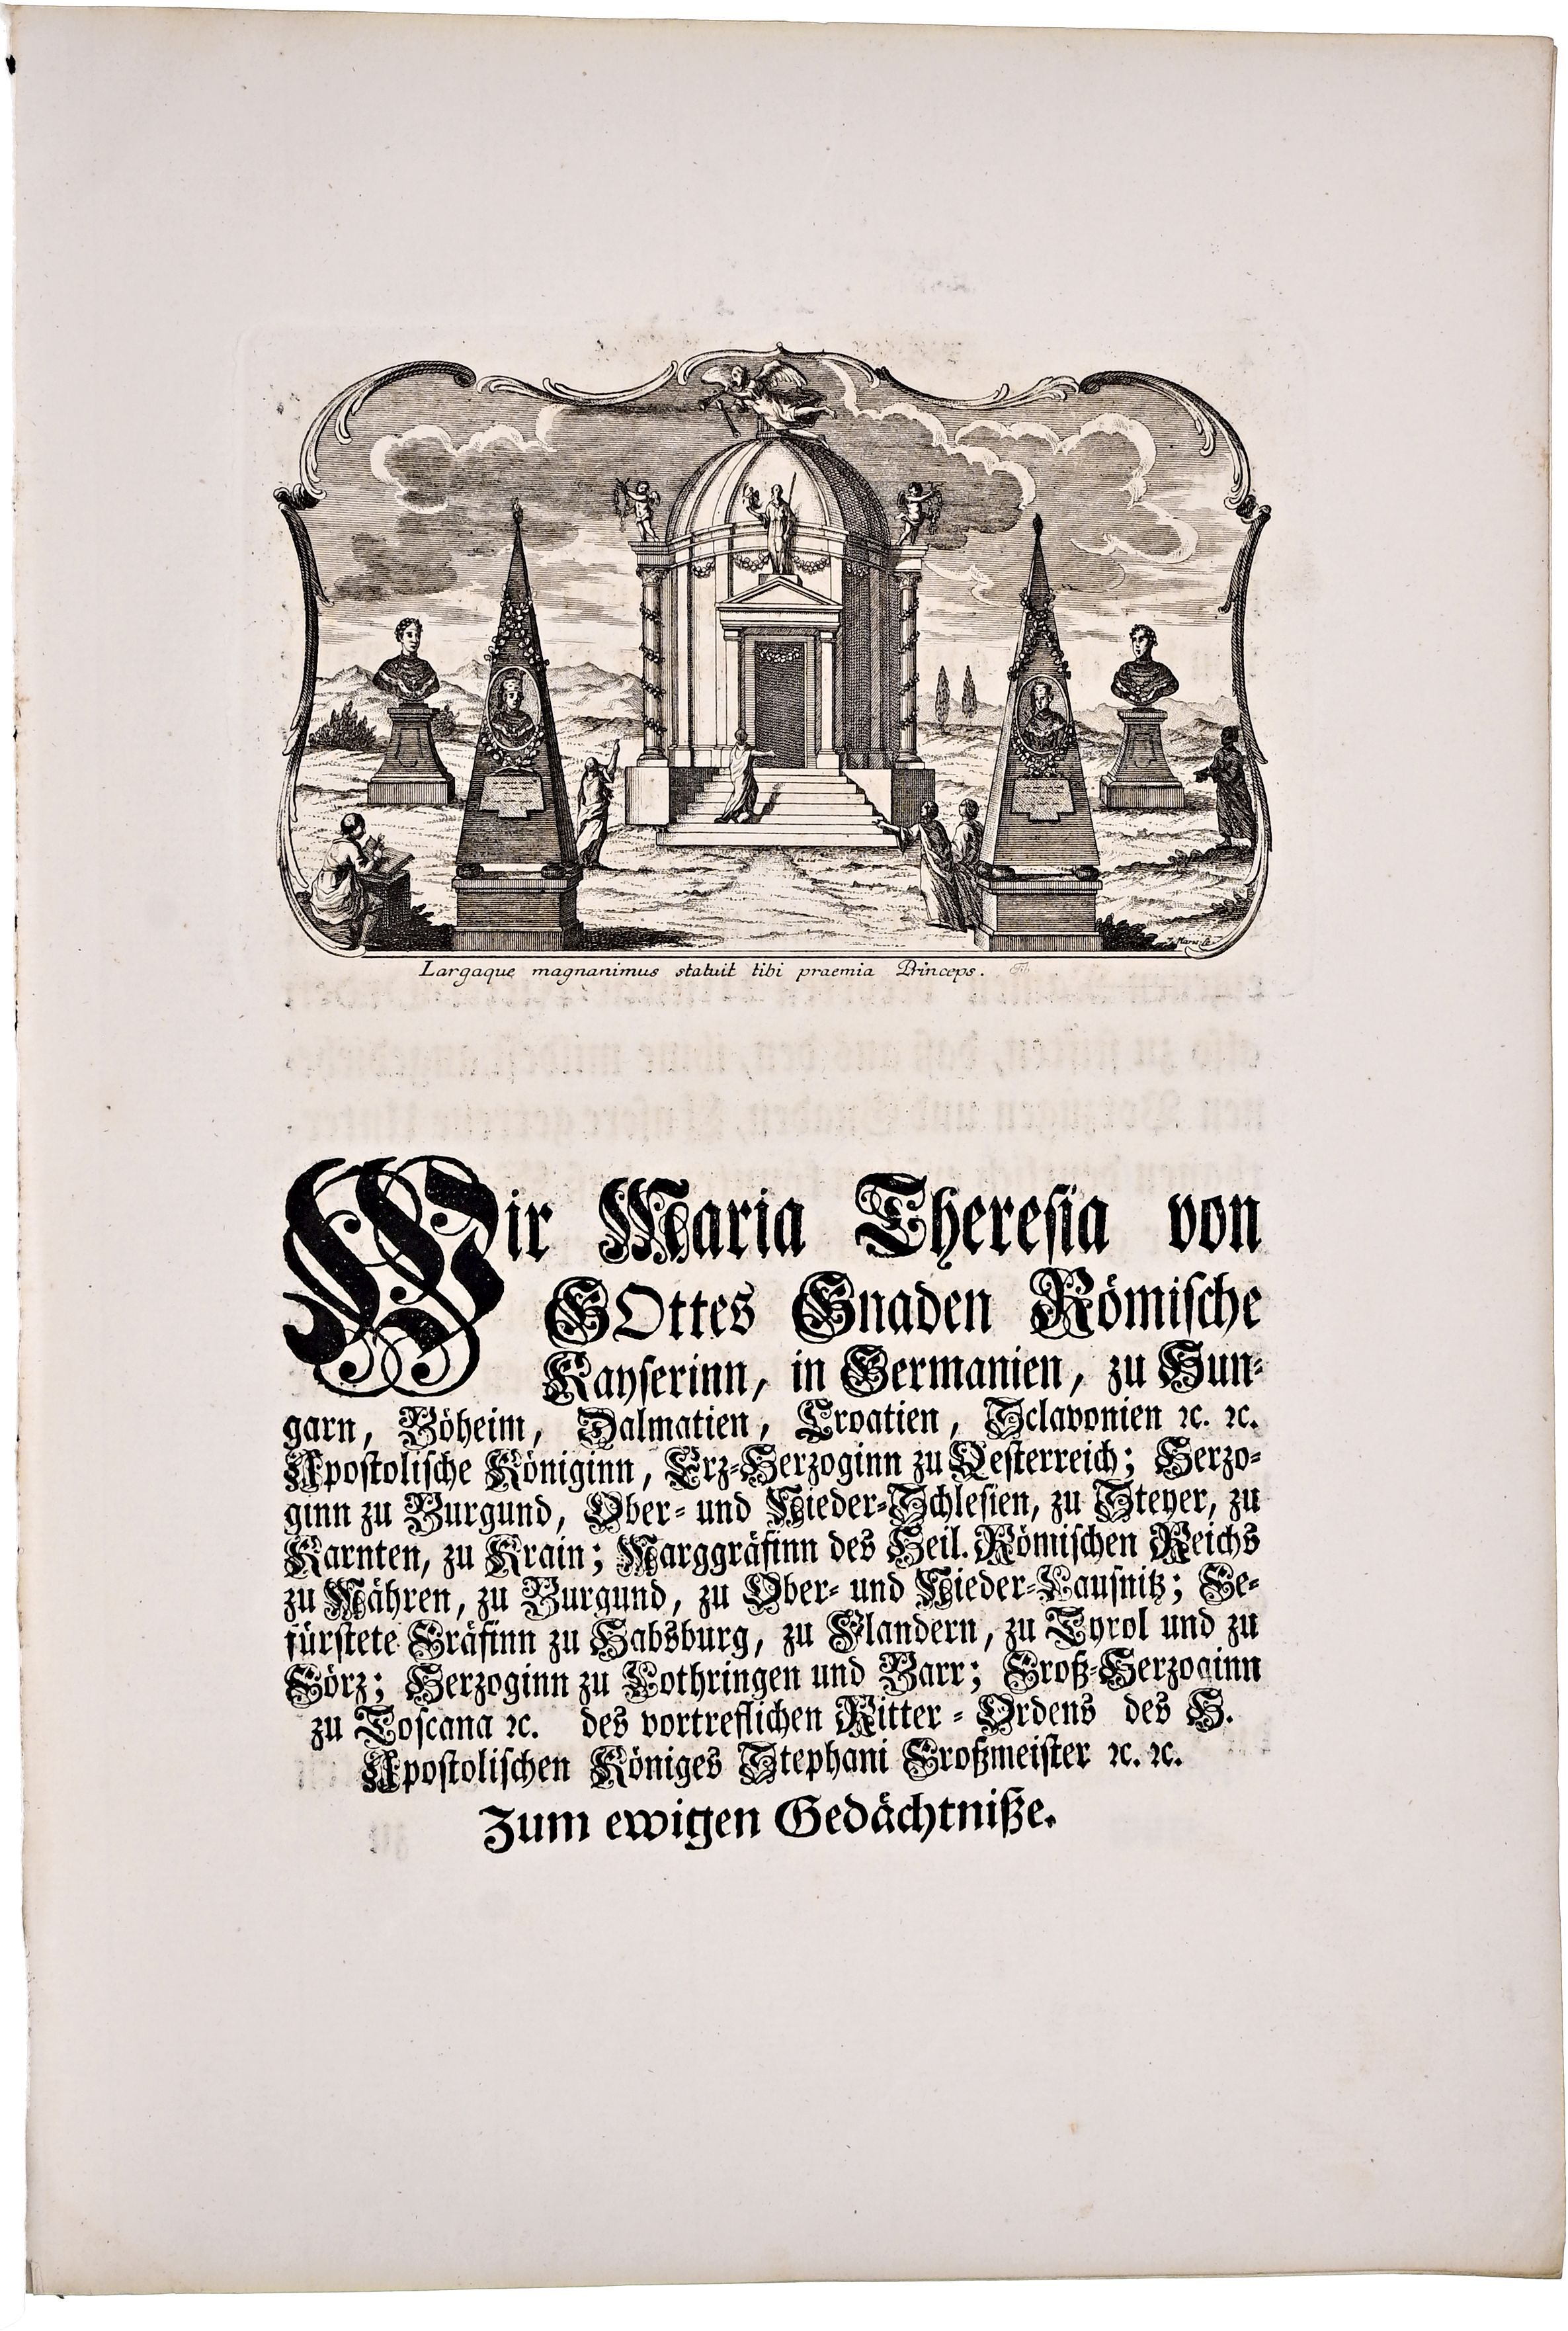 Largaque magnanimus statuit tibi praemia Princeps.
Wir Maria Theresia von
GOttes Gnaden Römische
Kayserinn, in Germanien, zu Hun-
garn, Böheim, Dalmatien, Croatien, Sclavonien ꝛc. ꝛc.
Apostolische Königinn, Erz-Herzoginn zu Oesterreich; Herzo-
ginn zu Burgund, Ober- und Nieder-Schlesien, zu Steyer, zu
Karnten, zu Krain; Marggräfinn des Heil. Römischen Reichs
zu Mähren, zu Burgund, zu Ober- und Nieder-Lausnitz; Ge-
fürstete Gräfinn zu Habsburg, zu Flandern, zu Tyrol und zu
Görz; Herzoginn zu Lothringen und Barr; Groß-Herzoginn
zu Toscana ꝛc. des vortreflichen Ritter-Ordens des H.
Apostolischen Königes Stephani Großmeister ꝛc. ꝛc.
Zum ewigen Gedächtniße.